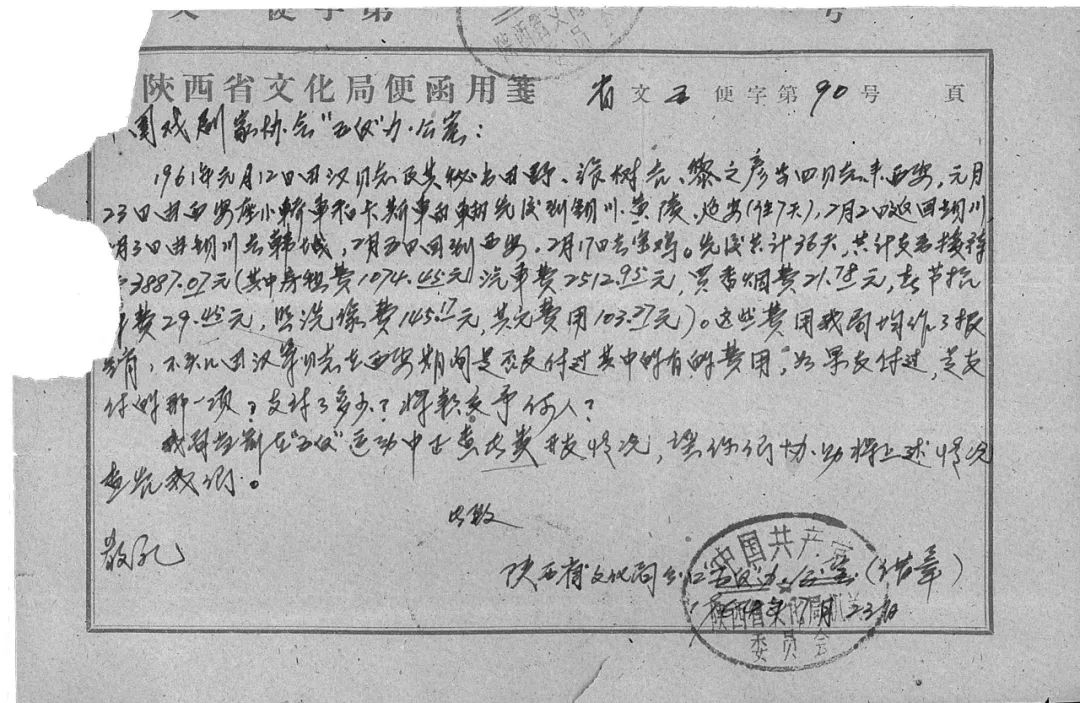 便字第 号
陕西省文化局便函用笺 省文五便字第90号 頁
国戏剧家协会“五反”办公室：
1961年元月12日田汉同志及其秘书田野、张树忠、黎之彦等四同志来西安，元月
23日由西安座小轎車和卡斯車兩輛先后到銅川、黄陵、延安（住7天），2月2日返回銅川
月3日由銅川去韩城，2月五日回到西安，2月17日去宝鸡。先后共计36天，共计支出接待
3887.07元（其中房租费1074.45元，汽車费2512.95元，買香烟费21.78元，春节
费29.45元，照洗像费145.17元，其它费用103.27元）。这些费用我局均作了报
销，不知田汉等同志在西安期间是否支付过其中的有的费用，如果支付过，是支
付的那一项？支付了多少？将款交予何人？
我局目前在“五反”运动中正查此费开支情况，望你们协助将上述情况
查告我们。
此致
敬礼
陕西省文化局五反办公室（代章）
7月23日
中国共产党
陕西省文化局机关
委员会
陕西省文